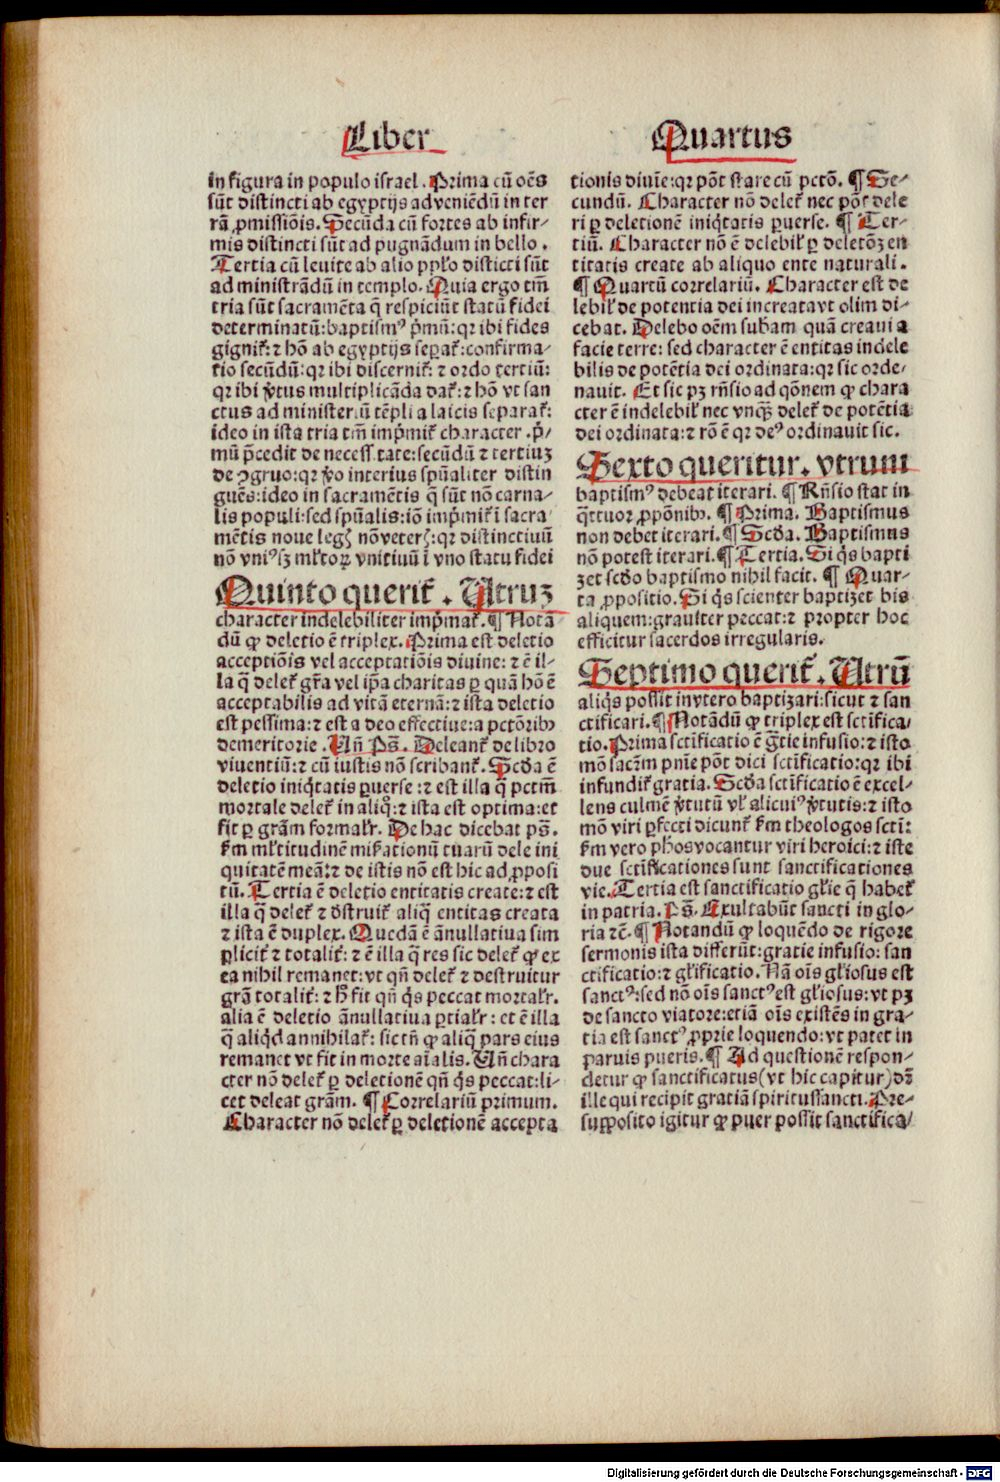 Liber
in figura in populo israel. Prima cū oēs
sūt distincti ab egyptijs adveniēdū in ter
rā ꝓmissiōis. Secūda cū fortes ab infir⸗
mis distincti sūt ad pugnādum in bello.
Tertia cū leuite ab alio ppl'o disticti sūt
ad ministrādū in templo. Quia ergo tm̄
tria sūt sacramēta q̄ respiciūt statū fidei
determinatū: baptismꝰ p̄mū: qꝛ ibi fides
gignit᷑: ⁊ hō ab egyptijs sepat᷑: confirma⸗
tio secūdū: qꝛ ibi discernit᷑: ⁊ ordo tertiū:
qꝛ ibi v̓tus multiplicāda dat᷑: ⁊ hō vt san
ctus ad ministeriū tēpli a laicis separat᷑:
ideo in ista tria tm̄ imp̄mit᷑ character. p̄⸗
mū p̄cedit de necessitate: secūdū ⁊ tertiuꝫ
de ꝯgruo: qꝛ v̓o interius spūaliter distin
guēs: ideo in sacramētis q̄ sūt nō carna⸗
lis populi: sed spūalis: iō imp̄mit᷑ ī sacra
mētis noue legꝭ nō veterꝭ: qꝛ distinctiuū
nō vniꝰ sꝫ ml'toꝝ vnitiuū ī vno statu fidei
Quinto querit᷑. Utruꝫ
character indelebiliter imp̄mat᷑. ¶ Notā
dū ꝙ deletio ē triplex. Prima est deletio
acceptiōis vel acceptatiōis diuine: ⁊ ē il⸗
la q̄ delet᷑ gr̄a vel ip̄a charitas ꝑ quā hō ē
acceptabilis ad vitā eternā: ⁊ ista deletio
est pessima: ⁊ est a deo effectiue: a pctōribꝰ
demeritorie. Un̄ Ps̄. Deleant᷑ de libro
viuentiū: ⁊ cū iustis nō scribant᷑. Scd̓a ē
deletio iniq̇tatis ꝑuerse: ⁊ est illa q̄ pctm̄
mortale delet᷑ in aliq̇: ⁊ ista est optima: et
fit ꝑ grām formalr̄. De hac dicebat ps̄.
Fm ml'titudinē mis̓ationū tuarū dele ini
quitatē meā: ⁊ de istis nō est hic ad ꝓposi
tū. Tertia ē deletio entitatis create: ⁊ est
illa q̄ delet᷑ ⁊ d̓struit᷑ aliq̄ entitas creata
⁊ ista ē duplex. Quedā ē ānullatiua sim
plicit᷑ ⁊ totalit᷑: ⁊ ē illa q̄ res sic delet᷑ ꝙ ex
ea nihil remanet: vt qn̄ delet᷑ ⁊ destruitur
grā totalit᷑: ⁊ h̓ fit qn̄ q̇s peccat mortalr̄.
alia ē deletio ānullatiua ꝑtialr̄: et ē illa
q̄ aliq̇d annihilat᷑: sic tn̄ ꝙ aliq̄ pars eius
remanet vt fit in morte aīalis. Un̄ chara
cter nō delet᷑ ꝑ deletionē qn̄ q̇s peccat: li⸗
cet deleat grām. ¶ Correlariū primum.
Character nō delet᷑ ꝑ deletionē accepta
Quartus
tionis diuīe: qꝛ pōt stare cū pctō. ¶ Se⸗
cundū. Character nō delet᷑ nec pōt dele
ri ꝑ deletionē iniq̇tatis ꝑuerse. ¶ Ter⸗
tiū. Character nō ē delebil' ꝑ deletōꝫ en
titatis create ab aliquo ente naturali.
¶ Quartū correlariū. Character est de
lebil' de potentia dei increata vt olim di⸗
cebat. Delebo oēm subam quā creaui a
facie terre: sed character ē entitas indele
bilis de potētia dei ordinata: qꝛ sic orde⸗
nauit. Et sic pꝫ rn̄sio ad qōnem ꝙ chara
cter ē indelebil' nec vnq̄ꝫ delet᷑ de potētia
dei ordinata: ⁊ rō ē qꝛ deꝰ ordinauit sic.
Sexto queritur. vtrum
baptismꝰ debeat iterari. ¶ Rn̄sio stat in
q̄ttuor ꝓpōnibꝰ. ¶ Prima. Baptismus
non debet iterari. ¶ Scd̓a. Baptismus
nō potest iterari. ¶ Tertia. Si q̇s bapti
zet scd̓o baptismo nihil facit. ¶ Quar⸗
ta ꝓpositio. Si q̇s scienter baptizet bis
aliquem: grauiter peccat: ⁊ propter hoc
efficitur sacerdos irregularis.
Septimo querit᷑. Utrū
aliq̇s possit in vtero baptizari: sicut ⁊ san
ctificari. ¶ Notādū ꝙ triplex est sctifica⸗
tio. Prima sctificatio ē gr̄tie infusio: ⁊ isto
mō sacm̄ pnīe pōt dici sctificatio: qꝛ ibi
infundit᷑ gratia. Scd̓a sctificatio ē excel⸗
lens culmē v̓tutū vl' alicuiꝰ v̓tutis: ⁊ isto
mō viri ꝑfecti dicunt᷑ fm theologos sctī:
fm vero ph̓os vocantur viri heroici: ⁊ iste
due sctificationes sunt sanctificationes
vie. Tertia est sanctificatio gl'ie q̄ habet᷑
in patria. Ps̄. Exultabūt sancti in glo⸗
ria ⁊c̄. ¶ Notandū ꝙ loquēdo de rigore
sermonis ista differūt: gratie infusio: san
ctificatio: ⁊ gl'ificatio. Nā oīs gl'iosus est
sanctꝰ: sed nō oīs sanctꝰ est gl'iosus: vt pꝫ
de sancto viatore: etiā oīs existēs in gra⸗
tia est sanctꝰ ꝓprie loquendo: vt patet in
paruis pueris. ¶ Ad questionē respon⸗
detur ꝙ sanctificatus (vt hic capitur) dr̄
ille qui recipit gratiā spiritussancti. Pre⸗
supposito igitur ꝙ puer possit sanctifica⸗
Digitalisierung gefördert durch die Deutsche Forschungsgemeinschaft - DFG